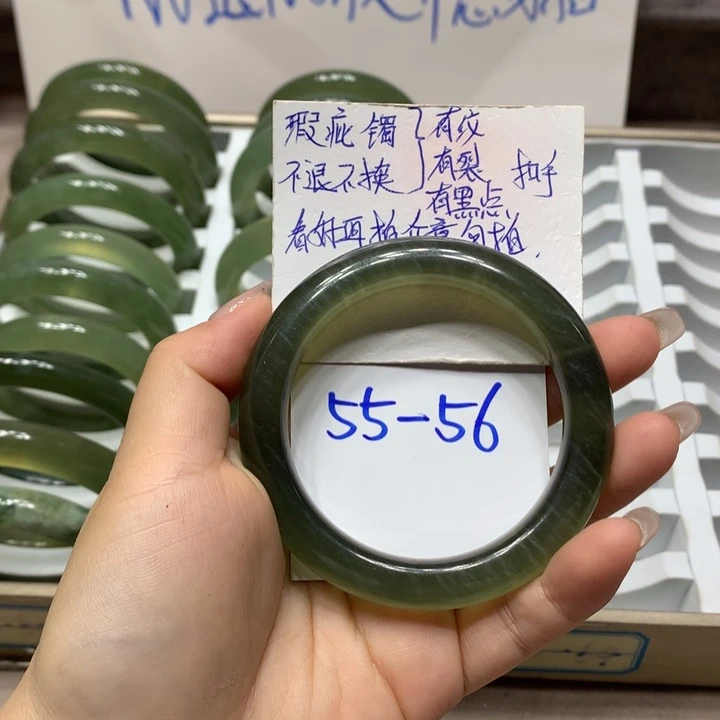 瑕疵镯 } 有纹
不退不换 } 有裂 扣手
有黑点
看好再拍 介意勿拍.
55-56